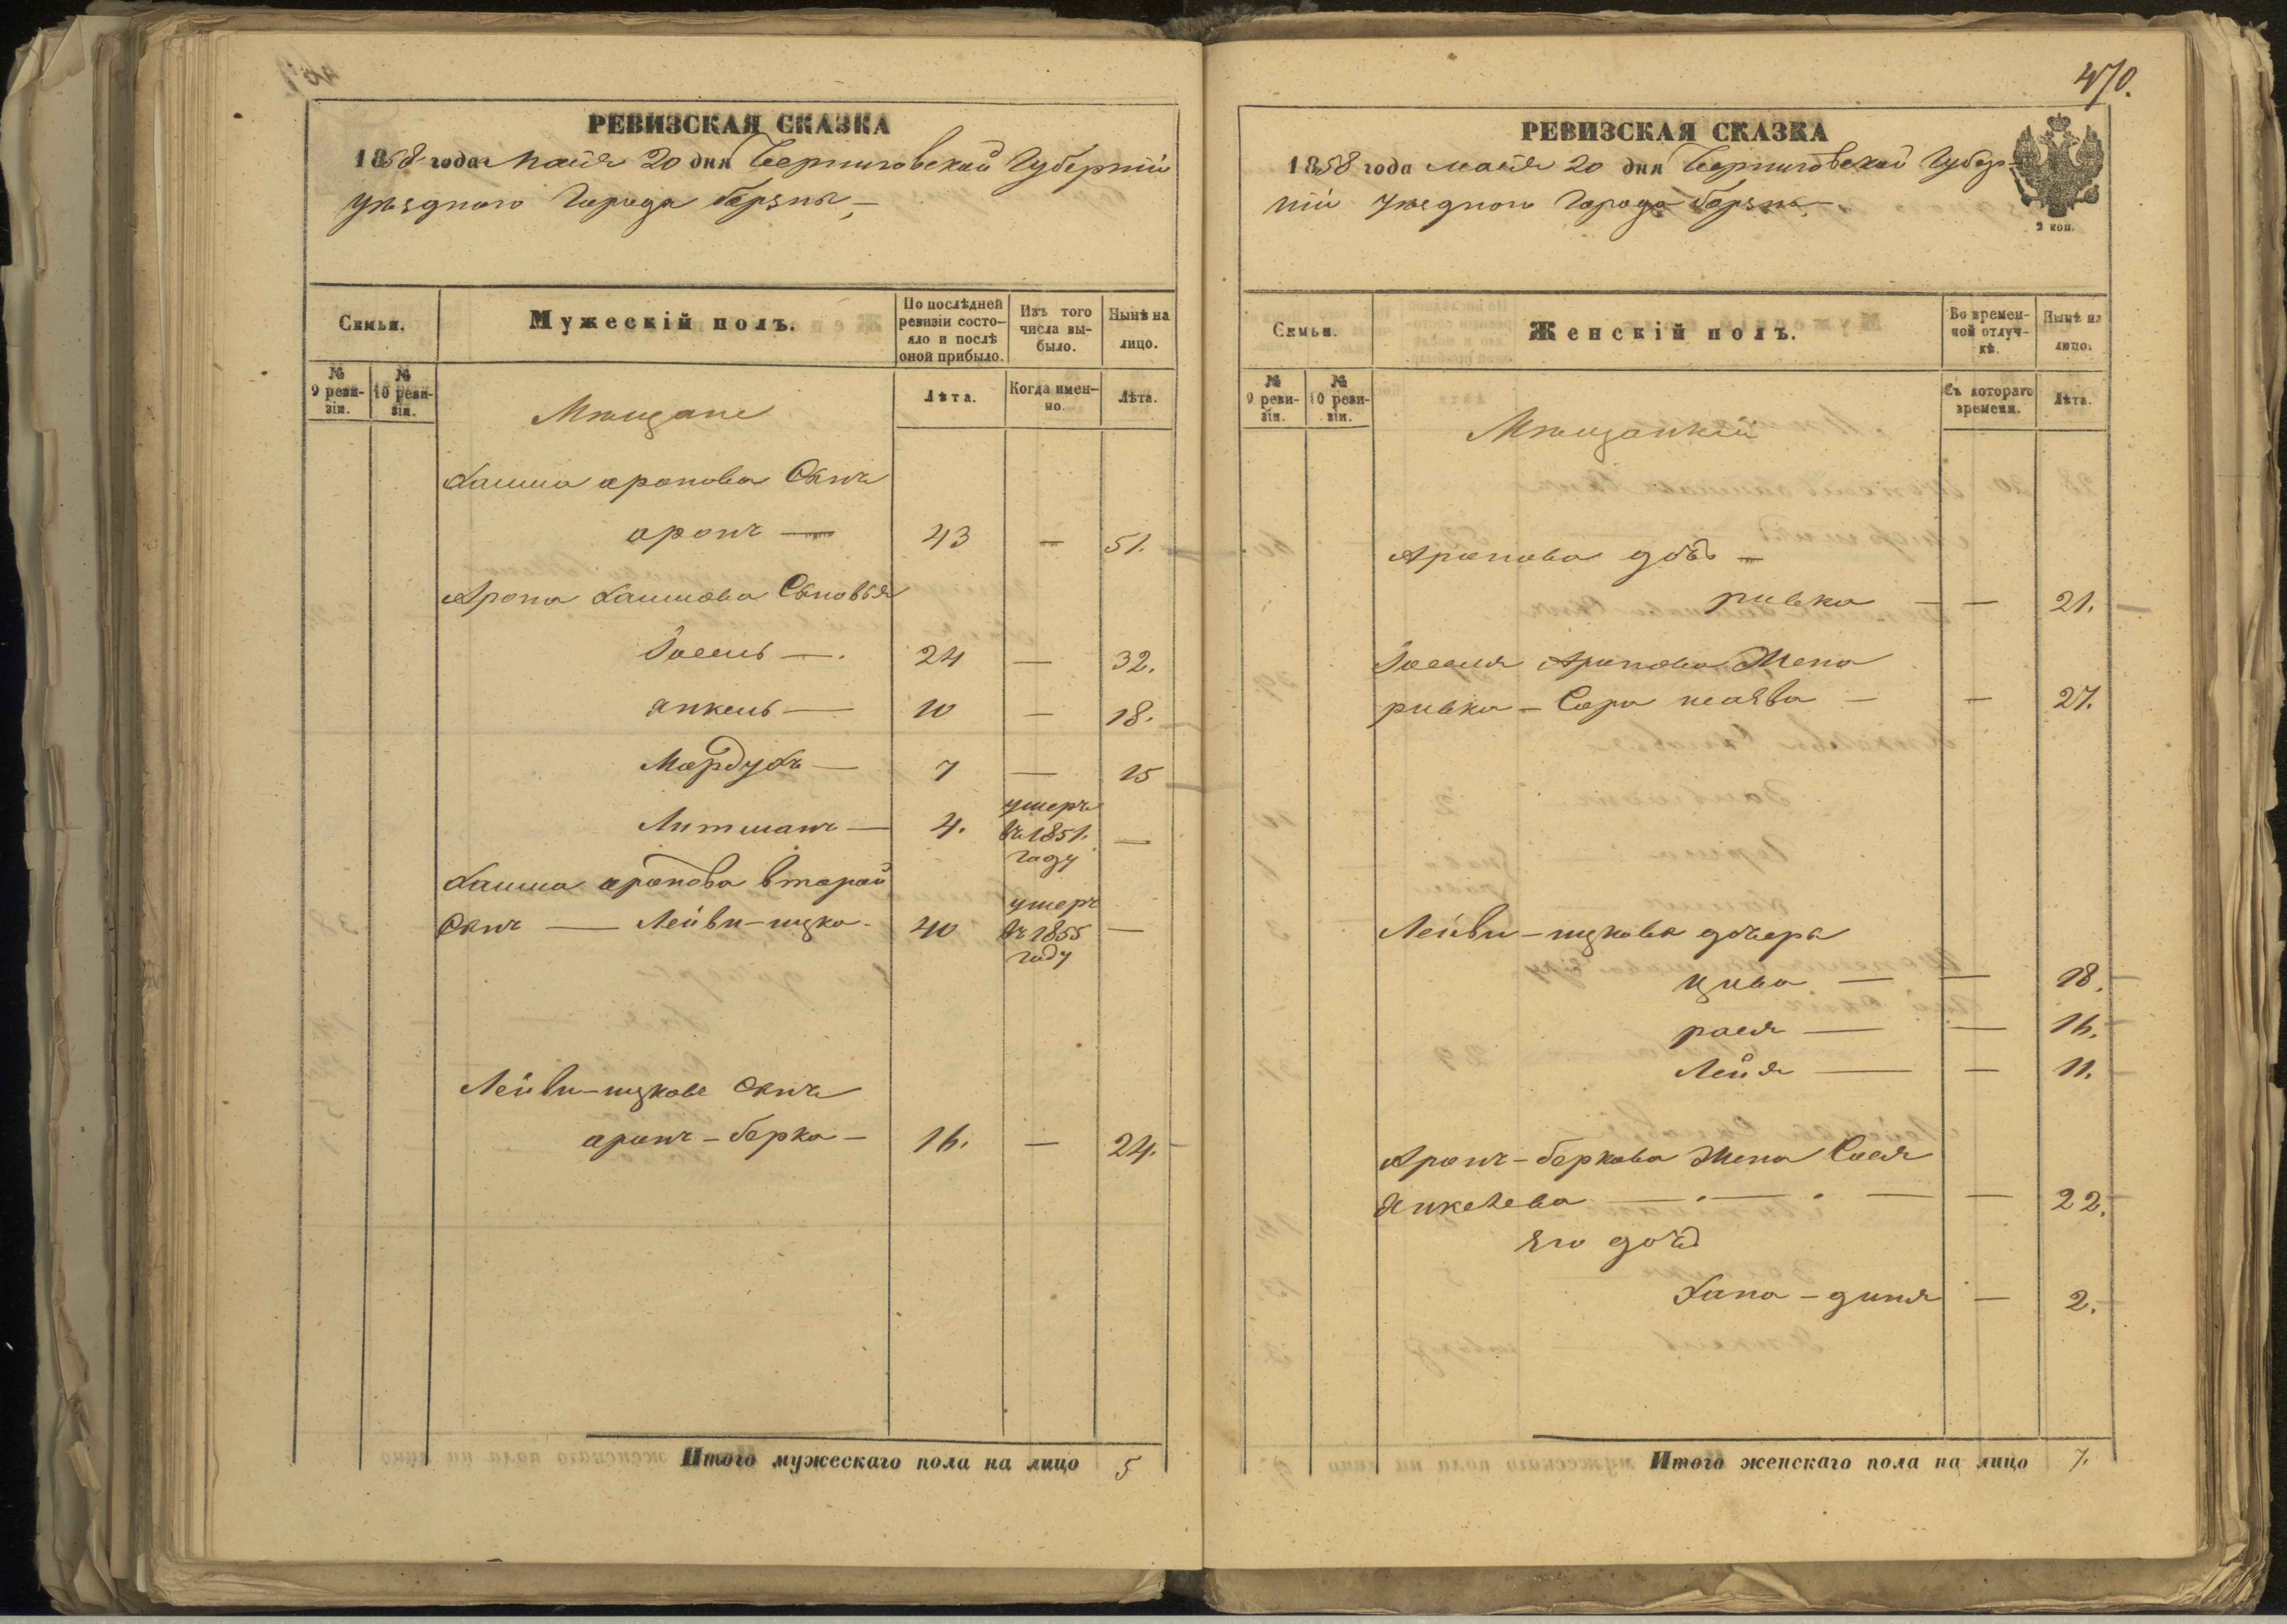 РЕВИЗСКАЯ СКАЗКА
1858 года Маія 20 дня Черниговской Губерніи
уѣзднаго Города Борзны,—
Семьи.
Мужескій полъ.
По послѣдней ревизіи состояло и послѣ оной прибыло.
Изъ того числа выбыло.
Нынѣ на лицо.
№ 9 ревизіи.
№ 10 ревизіи.
Лѣта.
Когда именно.
Лѣта.
Мѣщане
Хаима аронова Сынъ
аронъ — 43 — 51.
Арона Хаимова Сыновья
Іосель —. 24 — 32.
янкель — 10 — 18.
Мордухъ — 7 — 15
Литманъ — 4. умеръ въ 1851. году —
Хаима аронова второй
Сынъ — Лейви-ицко. 40 умеръ въ 1855 году —
Лейви-ицкове Сынъ
аронъ-берка — 16. — 24.
Итого мужескаго пола на лицо 5
470.
РЕВИЗСКАЯ СКАЗКА
1858 года маія 20 дня Черниговской Губер-
ніи уѣзднаго Города Борзны,—.
2 коп.
Семьи.
Женскій полъ.
Во временной отлучкѣ.
Нынѣ на лицо.
№ 9 ревизіи.
№ 10 ревизіи.
Съ котораго времени.
Лѣта.
Мѣщанкій
Аронова дочь —
ривка — — 21.
Іоселя Аронова Жена
ривка — Сора — — 27.
Лейви-ицкова дочера
цива — — 18.
рася — — 16.
Лейя — — 11.
Аронъ-беркова Жена Сося
янкелева — . — . — — 22.
Его дочь
Хана-диня — 2.
Итого женскаго пола на лицо 7.